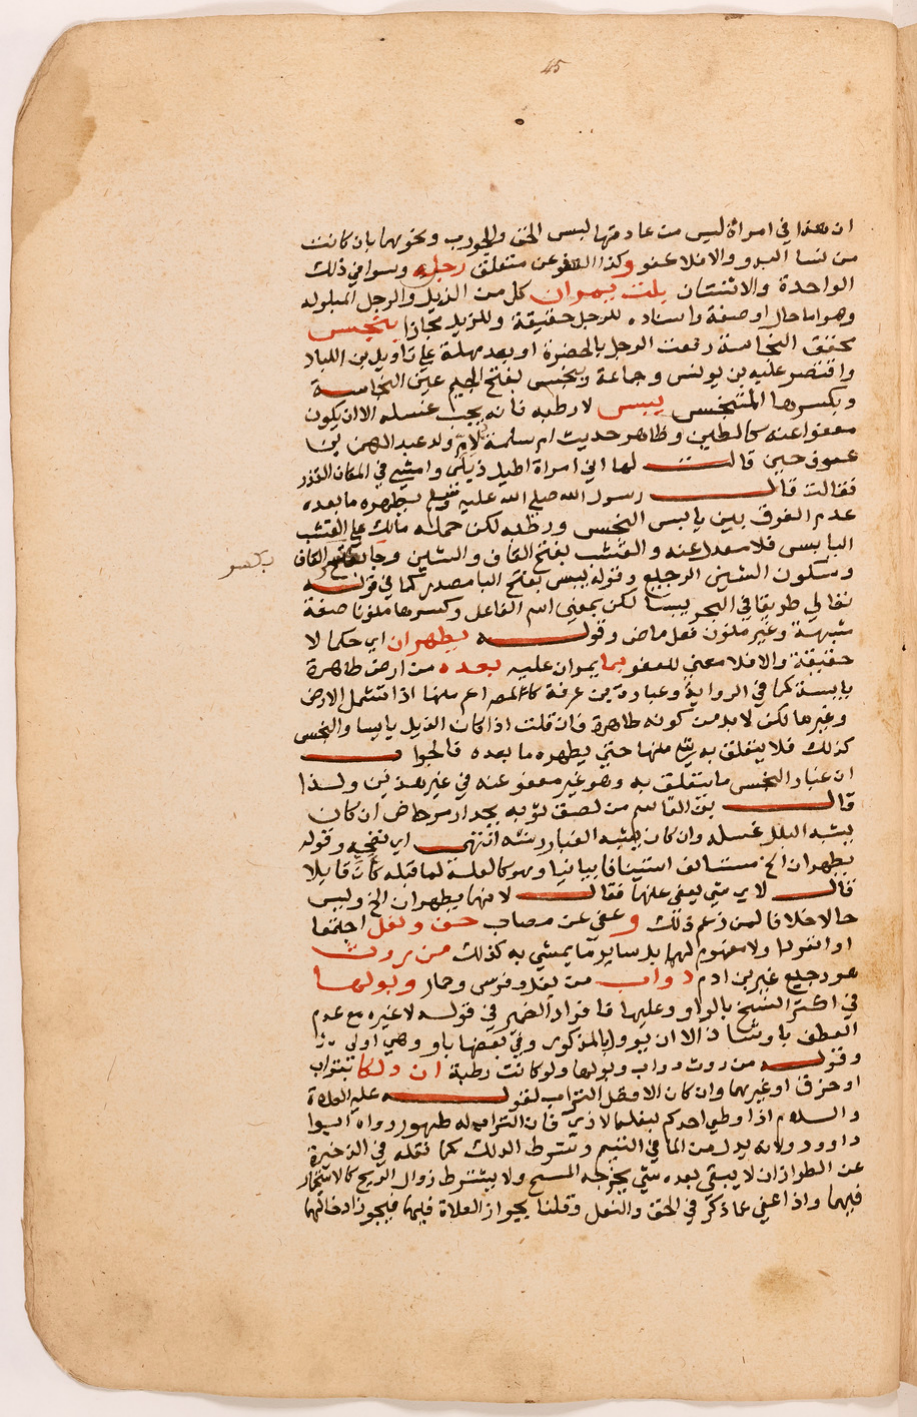 45
ان هذا في امراة ليس من عادتها لبس الخف والجورب ونحوهما بان كانت
من نسا البدو والا فلا عفو وكذا العفو عن متعلق رجله وسوا في ذلك
الواحدة والاثنتان بلت يمران كل من الذيل والرجل المبلوله
وهو اما حال او صفة واسناده للرجل حقيقة وللزيل مجازا بنجس
محقق النجاسة رفعت الرجل بالحضرة او بعد مهلة علي تاويل بن اللباد
واقتصر عليه بن يونس وجماعة ونجس بفتح الجيم عين النجاسة
وبكسرها المتنجس يبس لا رطبه فانه يجب غسله الا ان يكون
معفوا عنه كالطين وظاهر حديث ام سلمة لام ولد عبد الرحمن بن
عوف حين قالت لها اني امراة اطيل ذيلي وامشي في المكان القذر
فقالت قال رسول الله صلي الله عليه وسلم يطهره ما بعده
عدم الفرق بين يابس النجس ورطبه لكن حمله مالك علي القشب
اليابس فلا معدل عنه والقشب بفتح القاف والشين وجا القاف
بكسر
وسكون الشين الرجيع وقوله يبس بفتح البا مصدر كما في قوله
تعالي طريقا في البحر يبسا لكن بمعني اسم الفاعل وكسرها منونا صفة
مشبهة وغير منون فعل ماض وقوله يطهران اي حكما لا
حقيقة والا فلا معني للعفو بما يمران عليه بعده من ارض طاهرة
يابسة كما في الرواية وعبارة بن عرفة كالمص اعم منها اذا تشمل الارض
وغيرها لكن لا بد من كونه طاهرة فان قلت اذا كان الذيل يابسا والنجس
كذلك فلا يتعلق به شي منها حتي يطهره ما بعده فالجواب
ان غبار النجس ما يتعلق به وهو غير معفو عنه في غير هذين ولذا
قال بن القاسم من لصق ثوبه بجدار مرحاض ان كان
يشبه البلل غسله وان كان يشبه الغبار رشه انتهي اي نضحه وقوله
يطهران الخ مستانف استينافا بيانيا وهو كالعلة لما قبله كان قايلا
قال لاي شي يعفي عنها فقال لانها يطهران الخ وليس
حالا خلافا لمن زعم ذلك وعفي عن مصاب خف ونعل اجتمعا
او انفردا ولا مفهوم لهما بل ساير ما يمشي به كذلك من روث
هو رجيع غير بن ادم دواب من بغل وفرس وحمار وبولها
في اكثر النسخ بالواو وعليها فافراد الضمير في قوله لا غيره مع عدم
العطف باو شاذ الا ان يوول بالمذكور وفي بعضها باو وهي اولي
وقوله من روث دواب وبولها ولو كانت رطبة ان دلكا بتراب
او خرق او غيرهما وان كان الافضل التراب لقوله عليه الصلاة
والسلام اذا وطي احدكم بنعله الاذي فان التراب له طهور رواه ابوا
داوود ولانه بدل من الما في التيمم ويشترط الدلك كما نقله في الذخيرة
عن الطراز ان لا يبقي بعده شي يخرجه المسح ولا يشترط زوال الريح كالاستجمار
فيهما واذا عفي عما ذكر في الخف والنعل وقلنا يجواز الصلاة فيهما فيجوز ادخالهما